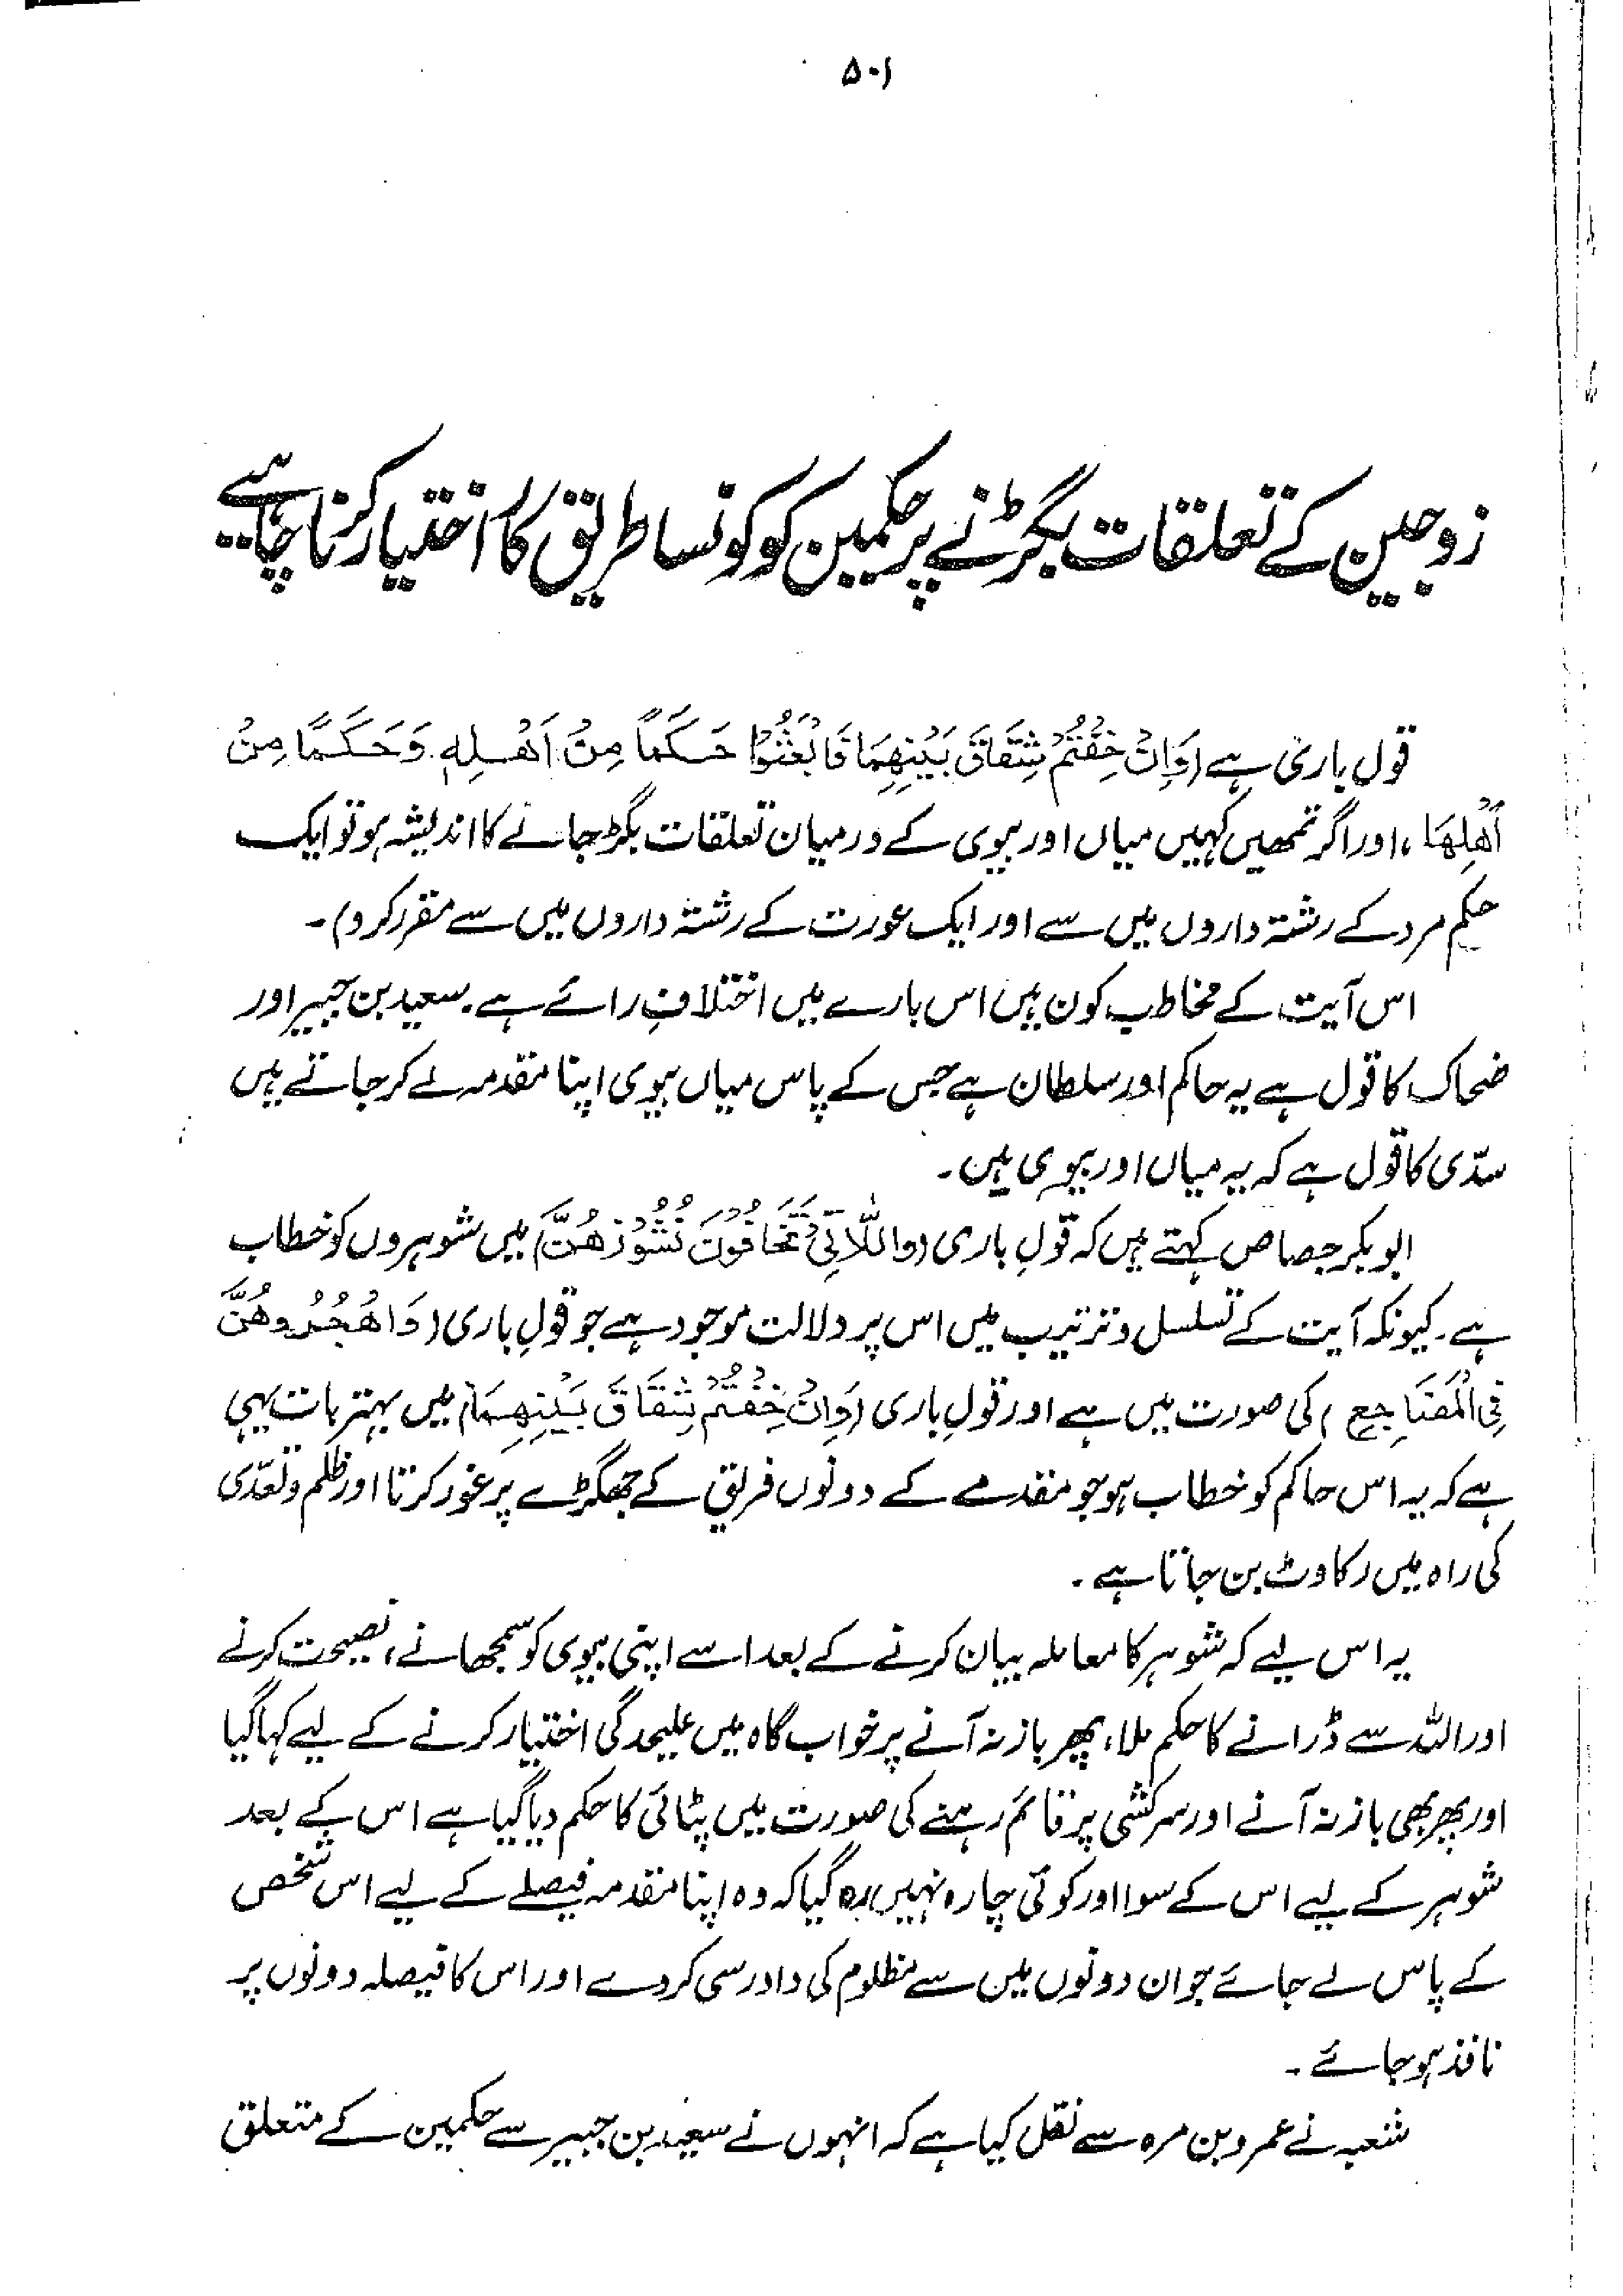 ۵۰۱
زوجین کے تعلقات بگڑنے پر حکمین کو کونسا طریق کار اختیار کرنا چاہیے
قول باری ہے (وَاِنْ خِفْتُمْ شِقَاقَ بَيْنِهِمَا فَابْعَثُوْا حَكَمًا مِنْ اَهْلِهٖ وَحَكَمًا مِنْ
اَهْلِهَا، اور اگر تمھیں کہیں میاں اور بیوی کے درمیان تعلقات بگڑ جانے کا اندیشہ ہو تو ایک
حکم مرد کے رشتہ داروں میں سے اور ایک عورت کے رشتہ داروں میں سے مقرر کرو)۔
اس آیت کے مخاطب کون ہیں اس بارے میں اختلافِ رائے ہے۔ سعید بن جبیر اور
ضحاک کا قول ہے یہ حاکم اور سلطان ہے جس کے پاس میاں بیوی اپنا مقدمہ لے کر جاتے ہیں
سدّی کا قول ہے کہ یہ میاں اور بیوی ہیں۔
ابوبکر جصاص کہتے ہیں کہ قولِ باری (واللَّاتِيْ تَخَافُوْنَ نُشُوْزَهُنَّ) میں شوہروں کو خطاب
ہے۔ کیونکہ آیت کے تسلسل و ترتیب میں اس پر دلالت موجود ہے جو قولِ باری (وَاهْجُرُوهُنَّ
فِي الْمَضَاجِعِ) کی صورت میں ہے اور قولِ باری (وَاِنْ خِفْتُمْ شِقَاقَ بَيْنِهِمَا) میں بہتر بات یہی
ہے کہ یہ اس حاکم کو خطاب ہو جو مقدمے کے دونوں فریق کے جھگڑے پر غور کرتا اور ظلم و تعدّی
کی راہ میں رکاوٹ بن جاتا ہے۔
یہ اس لیے کہ شوہر کا معاملہ بیان کرنے کے بعد اسے اپنی بیوی کو سمجھانے، نصیحت کرنے
اور اللہ سے ڈرانے کا حکم ملا، پھر باز نہ آنے پر خواب گاہ میں علیحدگی اختیار کرنے کے لیے کہا گیا
اور پھر بھی باز نہ آنے اور سرکشی پر قائم رہنے کی صورت میں پٹائی کا حکم دیا گیا ہے اس کے بعد
شوہر کے لیے اس کے سوا اور کوئی چارہ نہیں رہ گیا کہ وہ اپنا مقدمہ فیصلے کے لیے اس شخص
کے پاس لے جائے جو ان دونوں میں سے مظلوم کی دادرسی کردے اور اس کا فیصلہ دونوں پر
نافذ ہو جائے۔
شعبہ نے عمرو بن مرہ سے نقل کیا ہے کہ انہوں نے سعید بن جبیر سے حکمین کے متعلق